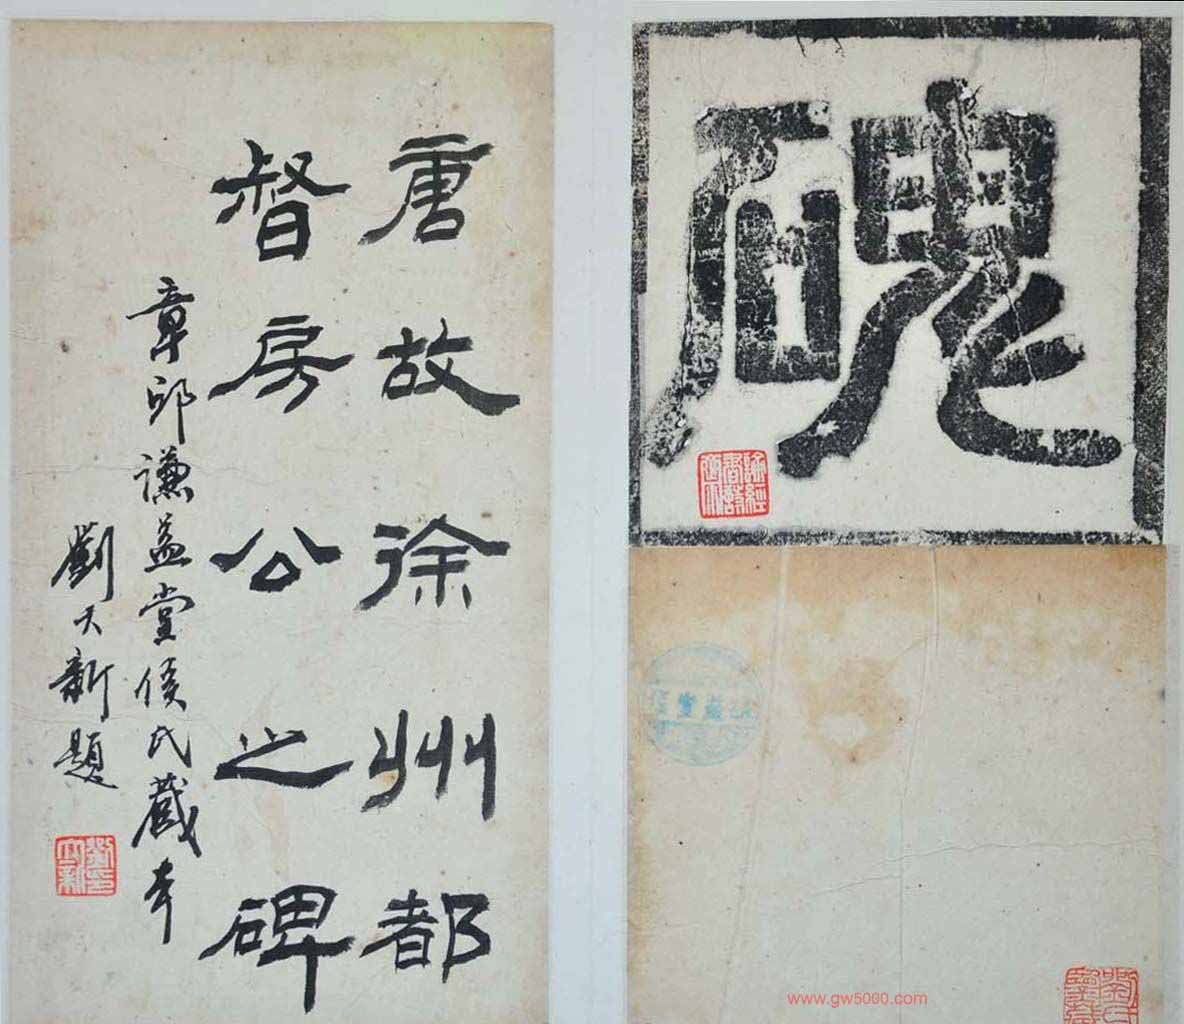 唐故徐州都
督房公之碑
章邱謙益堂侯氏藏本
劉天新題
磈
www.gw5000.com